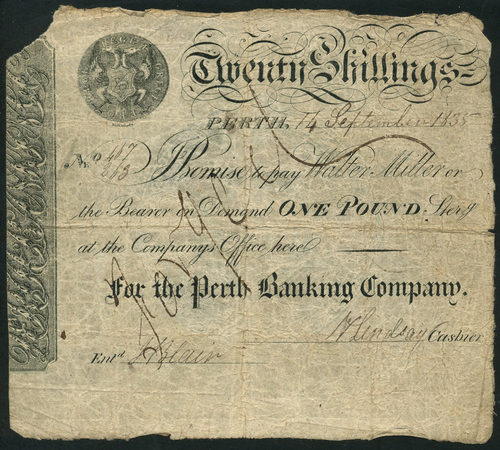 Twenty Shillings
PERTH, 14 September 1835
No 467
6/3 I Promise to pay Walter Miller or
the Bearer on Demand ONE POUND Sterg
at the Company's Office here
For the Perth Banking Company.
W Lindsay Cashier
Entd J Blair
Forgery